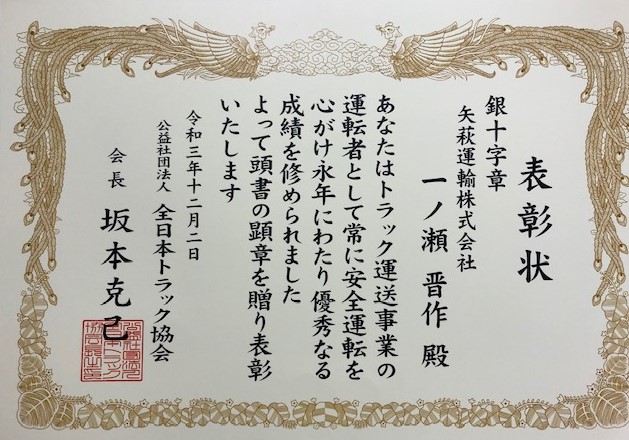 表彰状
銀十字章
矢萩運輸株式会社
一ノ瀬 晋作 殿
あなたはトラック運送事業の
運転者として常に安全運転を
心がけ永年にわたり優秀なる
成績を修められました
よって頭書の顕章を贈り表彰
いたします
令和三年十二月二日
公益社団法人 全日本トラック協会
会長 坂本克己